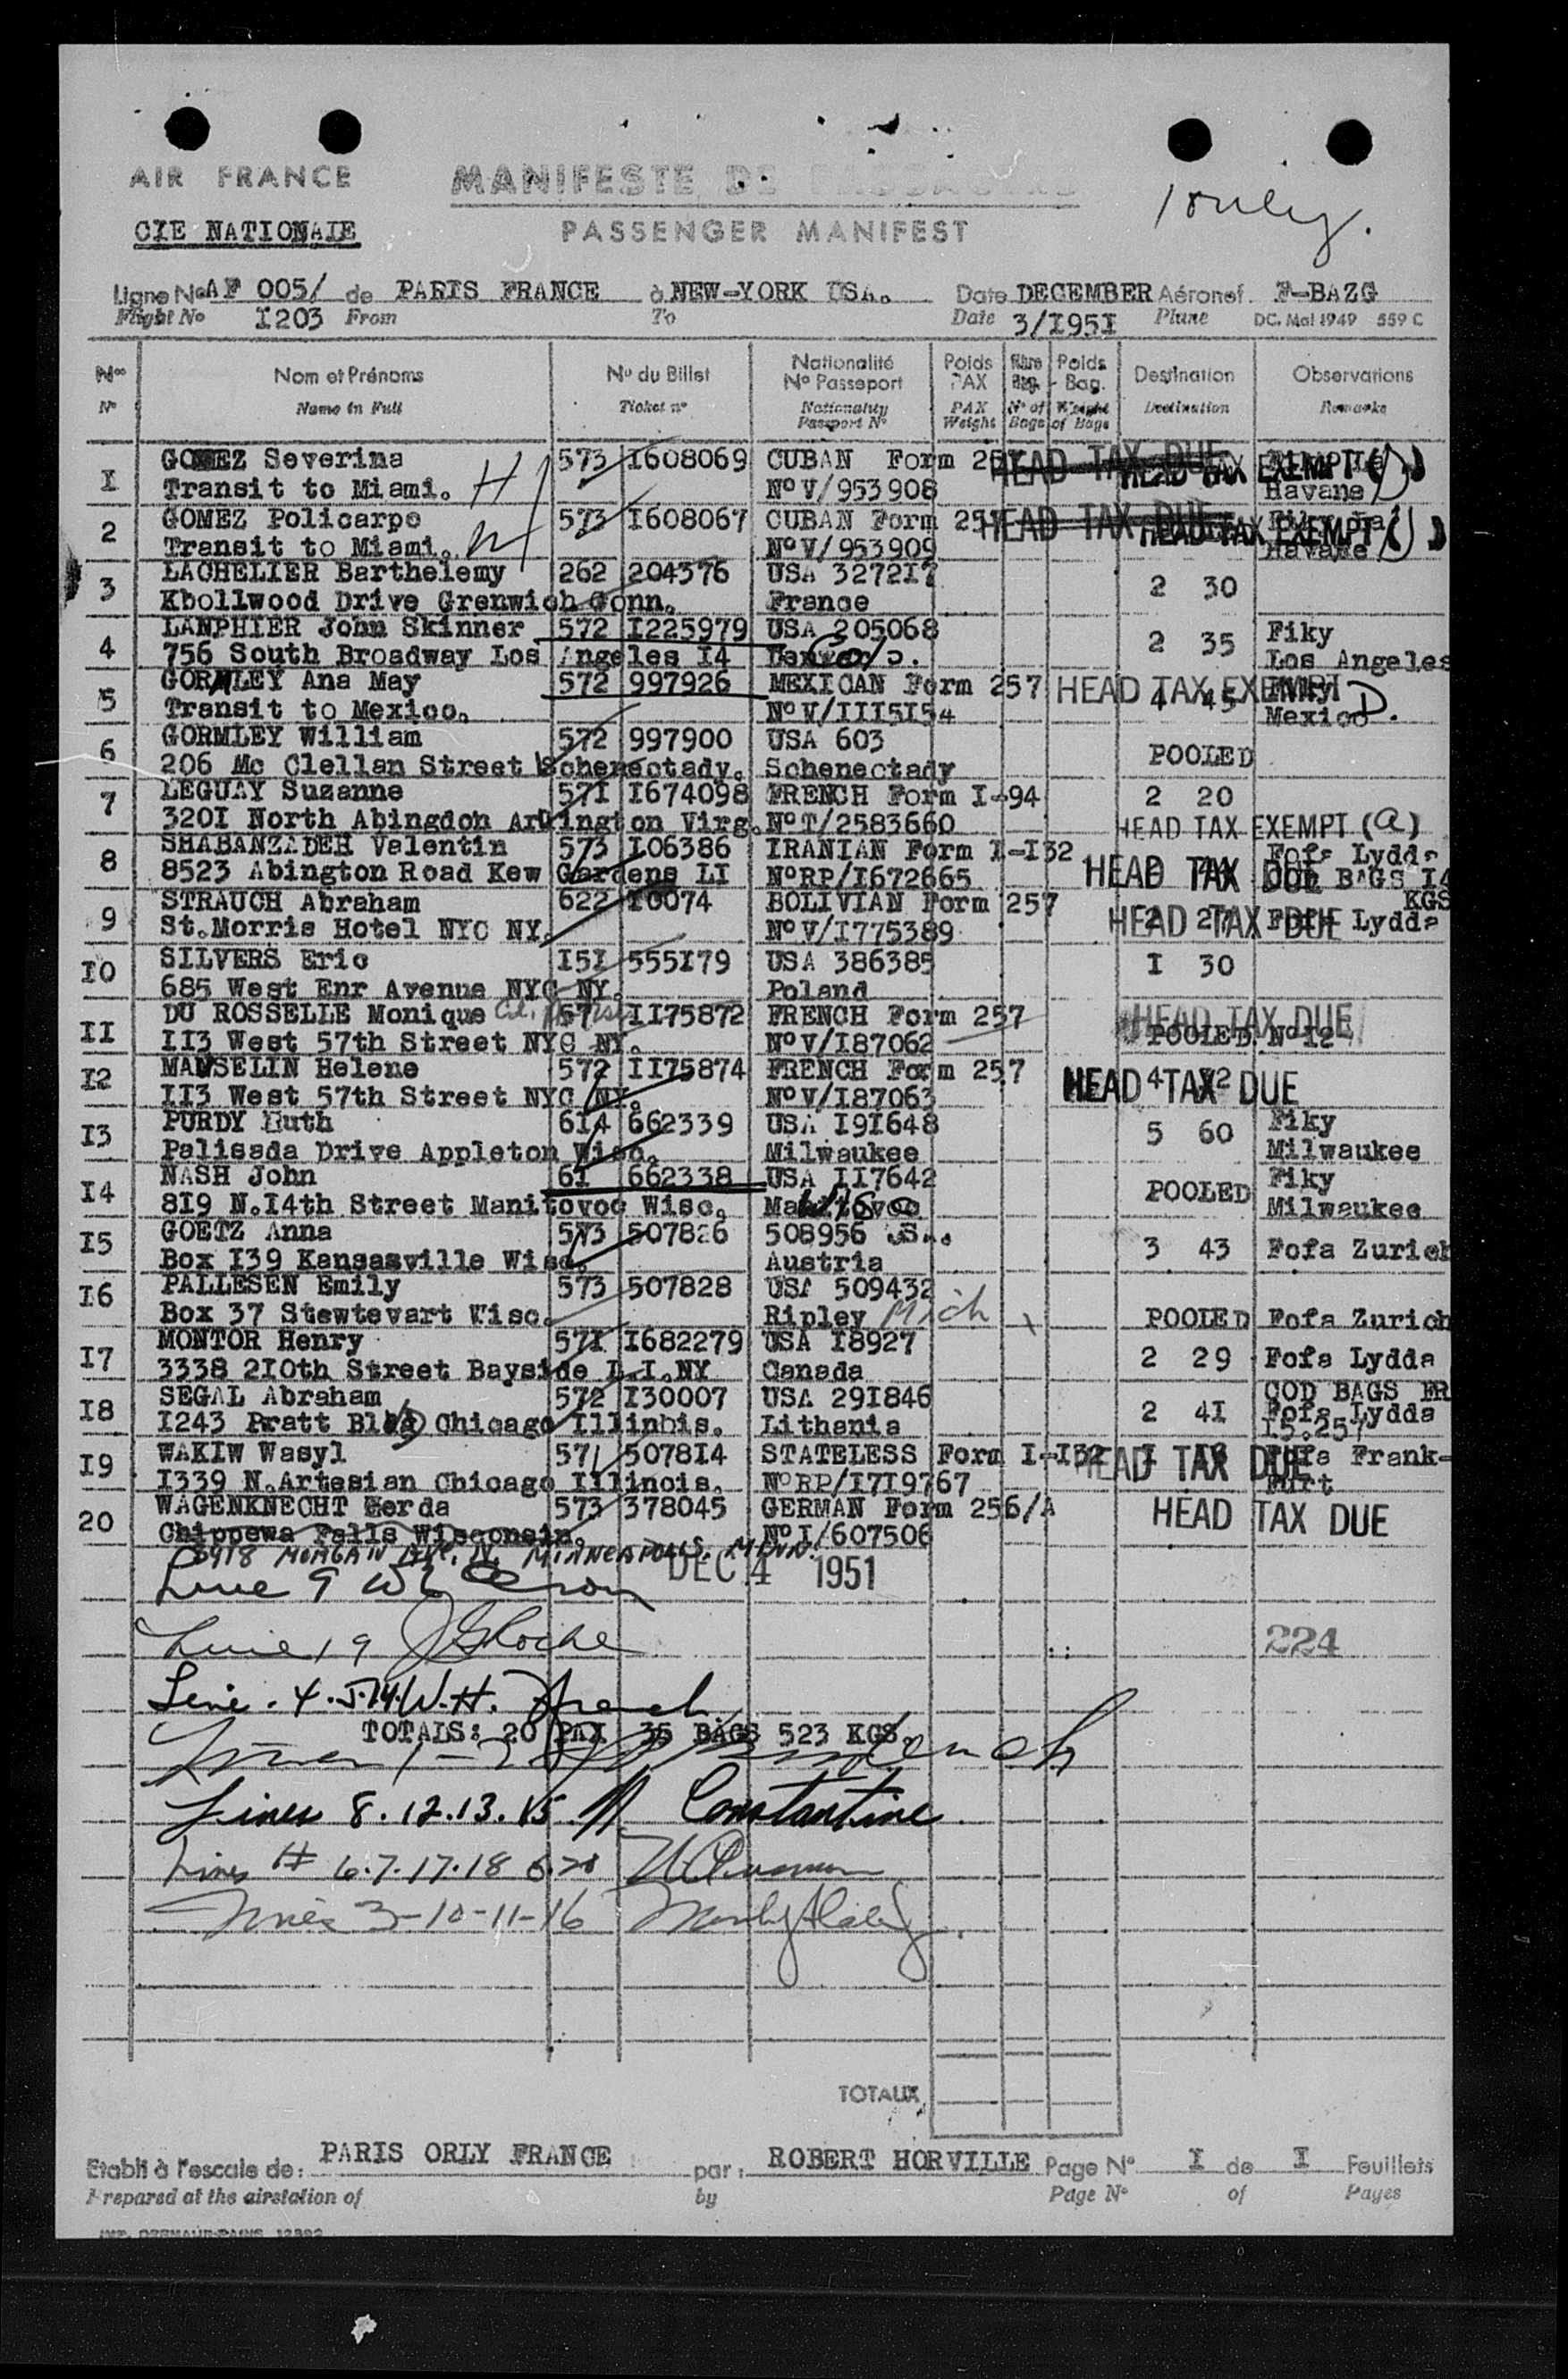 AIR FRANCE
MANIFESTE DE PASSAGERS
1 only.
CIE NATIONAIE
PASSENGER MANIFEST
Ligne No AF 005/ de PARIS FRANCE à NEW-YORK USA. Date DECEMBER Aéronef F-BAZG
Flight No I203 From To Date 3/I95I Plane DC. Mai 1949 559 C
Nos Nom et Prénoms No du Billet Nationalité No Passeport Poids PAX Poids Bag. Destination Observations
No Name in Full Ticket no Nationality Passport No PAX Weight No of Bags Weight of Bags Destination Remarks
I GOMEZ Severina 573 I608069 CUBAN Form 257 HEAD TAX DUE HEAD TAX EXEMPT
Transit to Miami. H No V/953908 Havane
2 GOMEZ Policarpo 573 I608067 CUBAN Form 257 HEAD TAX DUE HEAD TAX EXEMPT
Transit to Miami. No V/953909 Havane
3 LACHELIER Barthelemy 262 204376 USA 3272I7 2 30
Knollwood Drive Grenwich Conn. France
4 LANPHIER John Skinner 572 I225979 USA 205068 2 35 Fiky
756 South Broadway Los Angeles I4 Denver Colo. Los Angeles
5 GORMLEY Ana May 572 997926 MEXICAN Form 257 HEAD TAX EXEMPT 4 45 Fiky
Transit to Mexico. No V/III5I54 Mexico D.
6 GORMLEY William 572 997900 USA 603 POOLED
206 Mc Clellan Street Schenectady. Schenectady
7 LEGUAY Suzanne 57I I674098 FRENCH Form I-94 2 20
320I North Abingdon Arlington Virg. No T/2583660 HEAD TAX EXEMPT (a)
8 SHABANZADEH Valentin 573 I06386 IRANIAN Form I-I32 Fofa Lydda
8523 Abington Road Kew Gardens LI No RP/I672665 HEAD TAX DUE COD BAGS I4 KGS
9 STRAUCH Abraham 622 I0074 BOLIVIAN Form 257
St.Morris Hotel NYC NY. No V/I775389 HEAD TAX DUE 2 27 Fofa Lydda
I0 SILVERS Eric I5I 555I79 USA 386385 I 30
685 West Enr Avenue NYC NY. Poland
II DU ROSSELLE Monique 571 II75872 FRENCH Form 257 HEAD TAX DUE
II3 West 57th Street NYC NY. No V/I87062 POOLED No I2
I2 MANSELIN Helene 572 II75874 FRENCH Form 257 HEAD TAX DUE
II3 West 57th Street NYC NY. No V/I87063
I3 PURDY Ruth 6I4 662339 USA I9I648 5 60 Fiky
Palisada Drive Appleton Wisc. Milwaukee Milwaukee
I4 NASH John 61 662338 USA II7642 POOLED Fiky
8I9 N.I4th Street Manitovoc Wisc. Manitovoc Milwaukee
I5 GOETZ Anna 573 507826 508956 3 43 Fofa Zurich
Box I39 Kansasville Wisc. Austria
I6 PALLESEN Emily 573 507828 USA 509432
Box 37 Stewtevart Wisc. Ripley Mich POOLED Fofa Zurich
I7 MONTOR Henry 57I I682279 USA I8927
3338 2I0th Street Bayside L.I.NY Canada 2 29 Fofa Lydda
I8 SEGAL Abraham 572 I30007 USA 29I846 COD BAGS FR
I243 Pratt Blvd Chicago Illinois. Lithania 2 4I Fofa Lydda I5.257
I9 WAKIW Wasyl 571 5078I4 STATELESS Form I-I32 HEAD TAX DUE Fofa Frank-
I339 N.Artesian Chicago Illinois. No RP/I7I9767 furt
20 WAGENKNECHT Gerda 573 378045 GERMAN Form 256/A HEAD TAX DUE
Chippewa Falls Wisconsin. No I/607506
3918 MORGAN AVE. N. MINNEAPOLIS. MINN.
DEC 4 1951
Line 9
Line 19 224
Line . 4 . 5.14. W.H. French
TOTALS: 20 PAX 35 BAGS 523 KGS.
Lines 8.12.13.15. Constantine
Lines # 6.7.17.18 & 20
Lines 3-10-11-16
TOTAUX
Etabli à l'escale de: PARIS ORLY FRANCE par: ROBERT HORVILLE Page No I de I Feuillets
Prepared at the airstation of by Page No of Pages